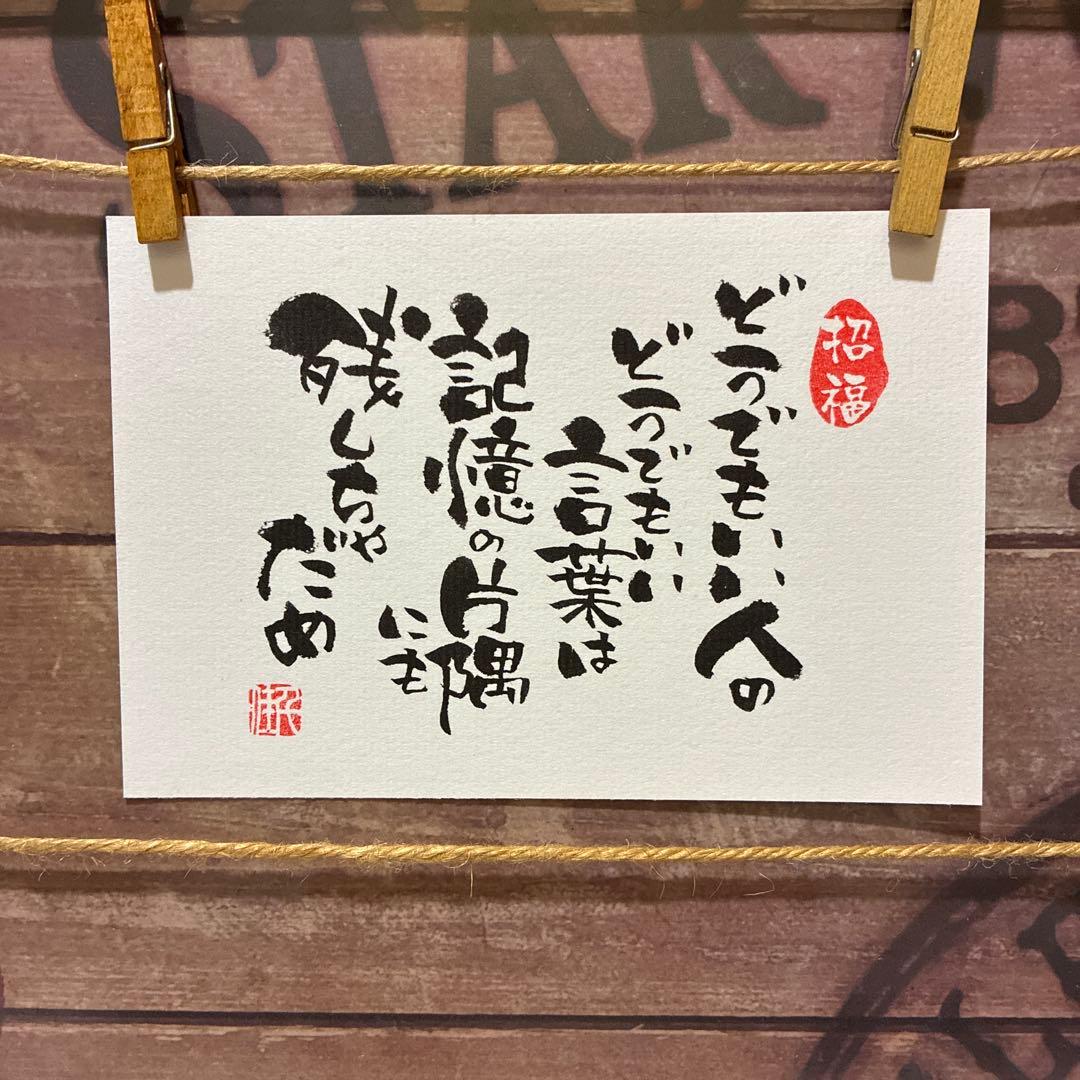 招福
どうでもいい人の
どうでもいい
言葉は
記憶の片隅
にも
残しちゃ
だめ
STAR
B